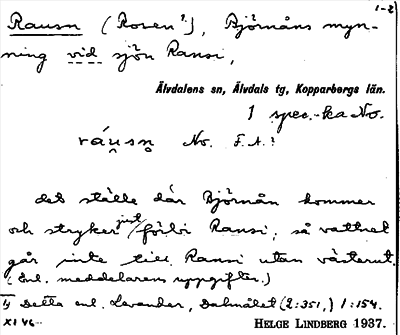 1-2
Rausn (Rosen?), Björnåns myn-
ning vid sjön Ransi,
Älvdalens sn, Älvdals tg, Kopparbergs län.
1 spec.-ka No.
ráu̯sn̥ No. F.A.!
det ställe där Björnån kommer
och stryker just förbi Ransi, så vattnet
går inte till Ransi utan västerut.
(Enl. meddelarens uppgifter.)
1) Detta enl. Levander, Dalmålet (2:351,) 1:154.
XI 46 HELGE LINDBERG 1937.